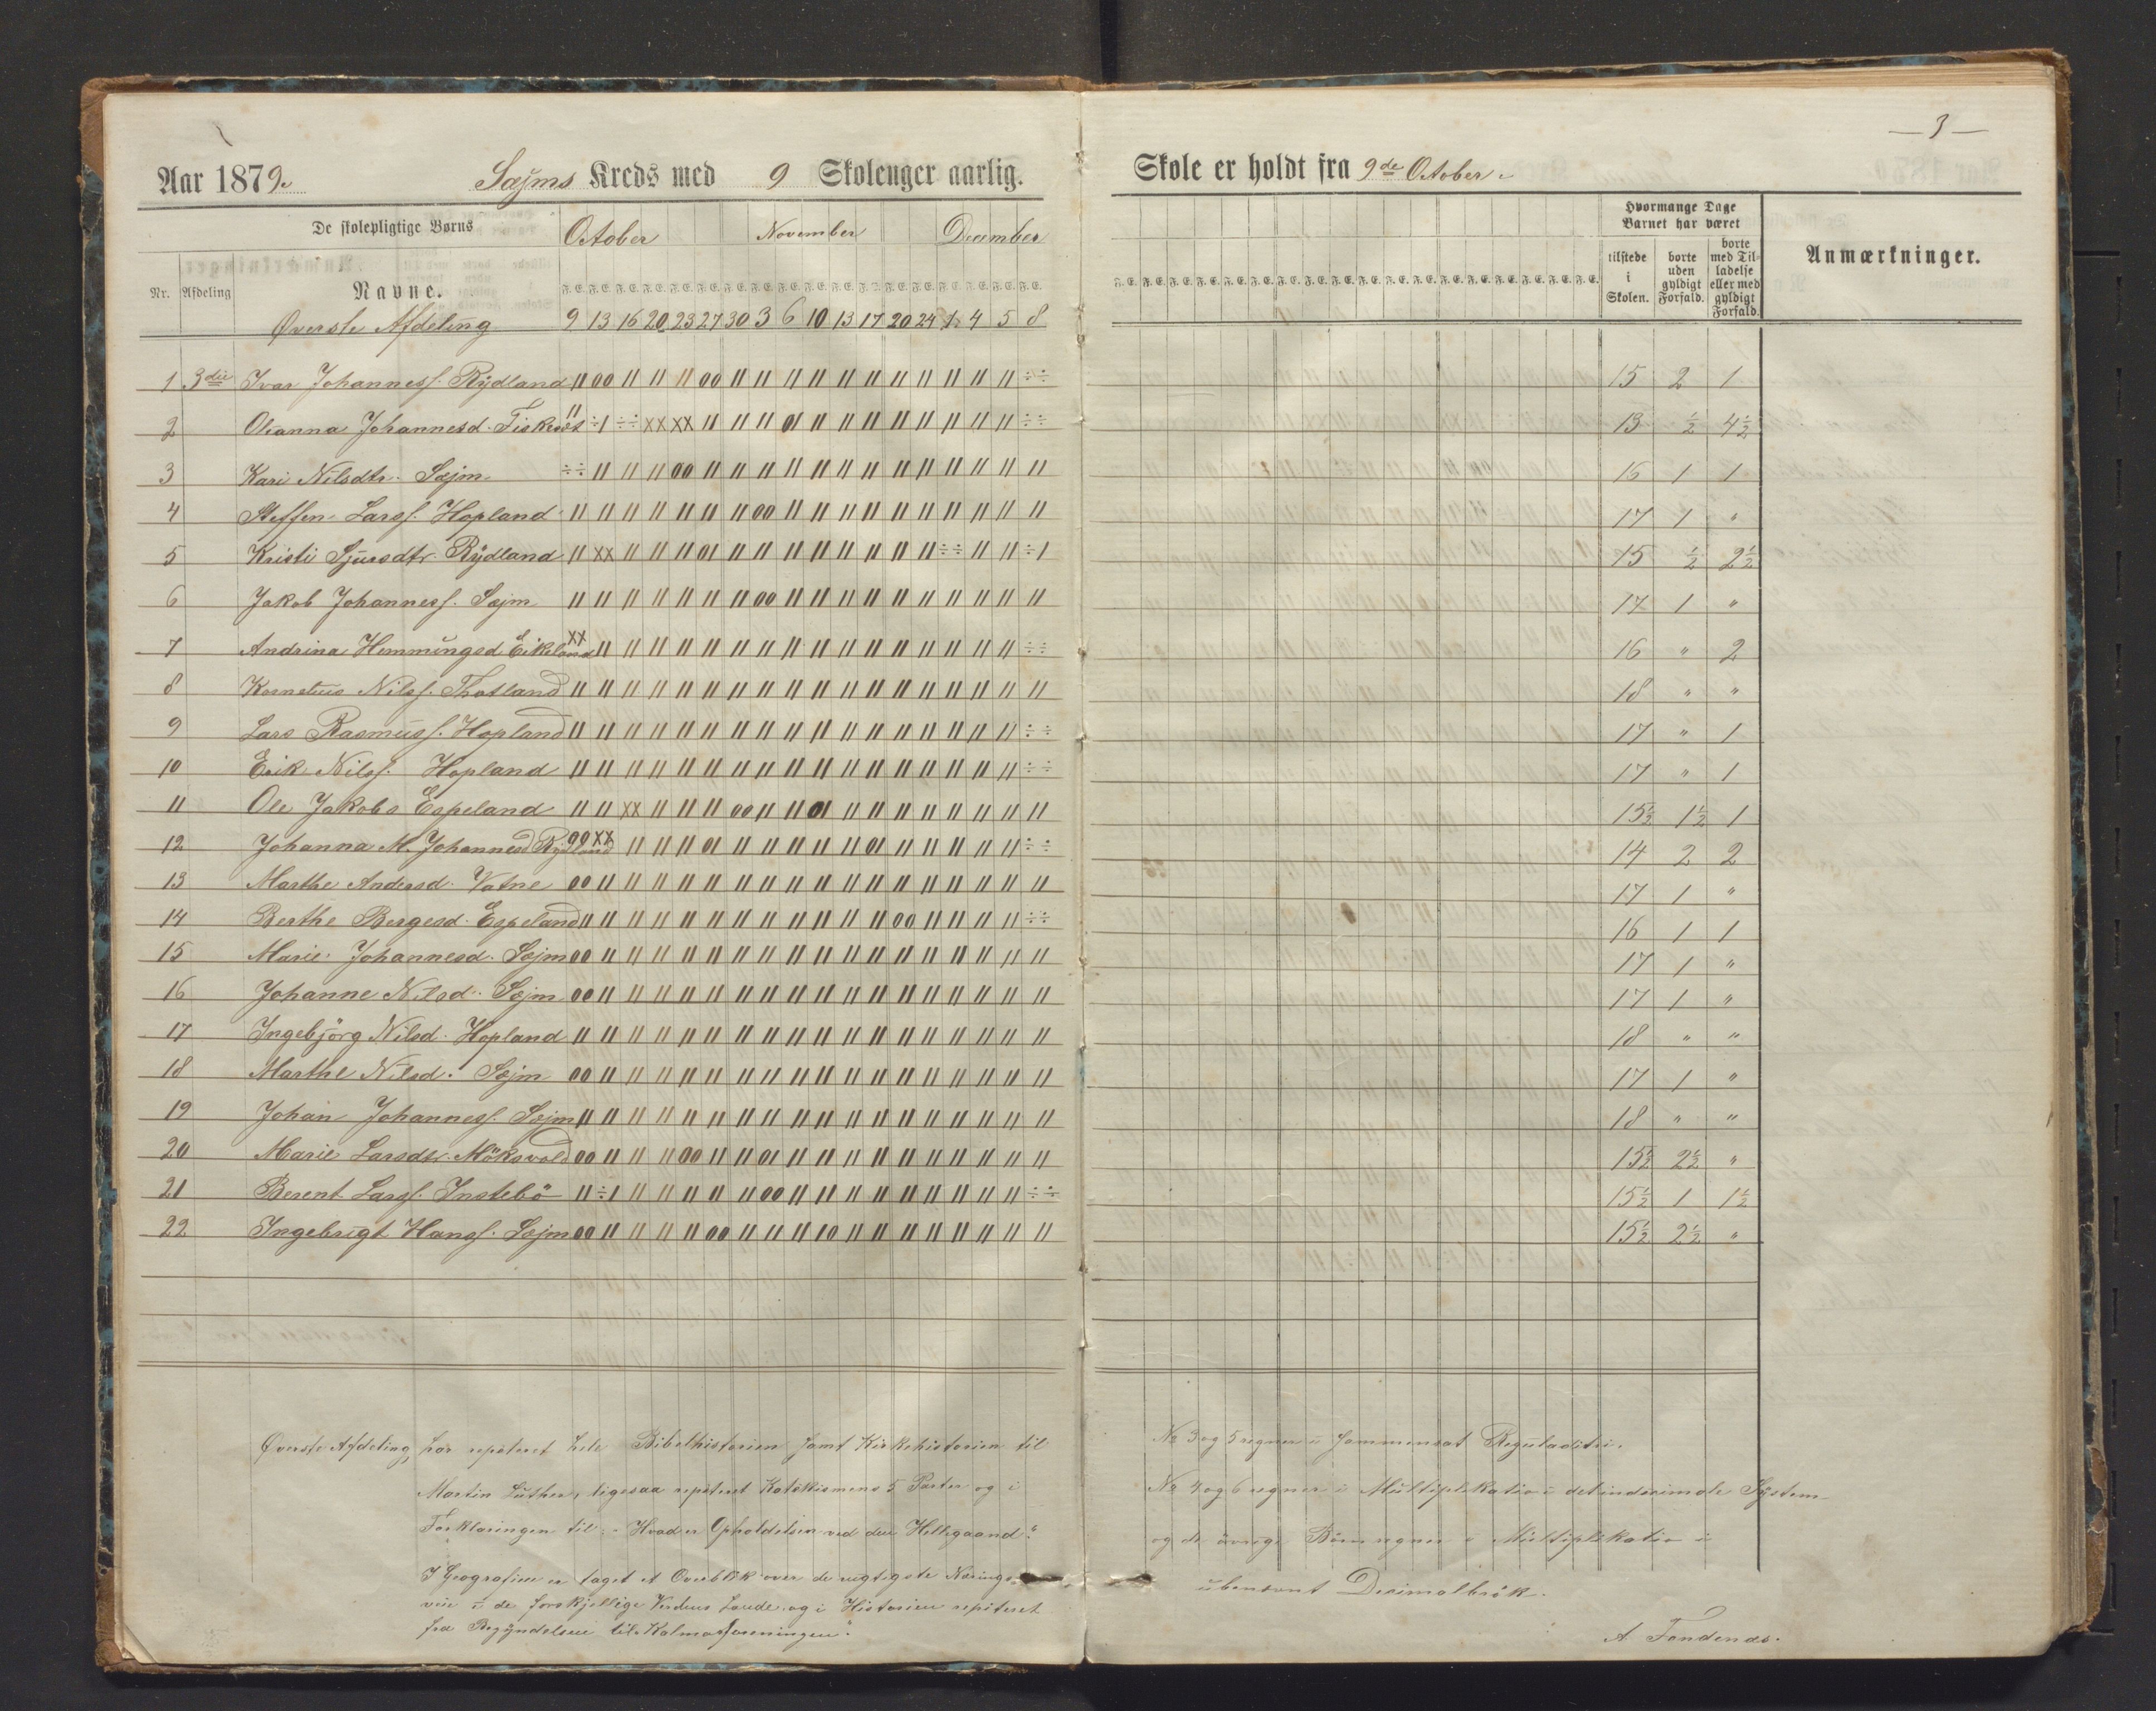 — 3 —
Aar 1879. Sæjms Kreds med 9 Skolenger aarlig.
Skole er holdt fra 9de October.
De skolepligtige Børns
October November December
Nr. Afdeling Navne.
F. E. F. E. F. E. F. E. F. E. F. E. F. E. F. E. F. E. F. E. F. E. F. E. F. E. F. E. F. E. F. E. F. E. F. E.
Øverste Afdeling 9 13 16 20 23 27 30 3 6 10 13 17 20 24 1 4 5 8
Hvormange Dage Barnet har været
tilstede i Skolen.
borte uden gyldigt Forfald.
borte med Tilladelse eller med gyldigt Forfald.
Anmærkninger.
1 3die Ivar Johannesf. Rÿdland 15 2 1
2 Olianna Johannesd. Fiskeset 13 ½ 4½
3 Kari Nilsdtr. Sæjm 16 1 1
4 Steffen Larsf. Hopland 17 1 "
5 Kristi Sjursdtr. Rÿdland 15 ½ 2½
6 Jakob Johannesf. Sæjm 17 1 "
7 Andrina Hemmingsd Eikeland 16 " 2
8 Kornelius Nilsf. Thotland 18 " "
9 Lars Rasmusf. Hopland 17 " 1
10 Erik Nilsf. Hopland 17 " 1
11 Ole Jakobs Espeland 15½ 1½ 1
12 Johanna M. Johannesd Rÿdland 14 2 2
13 Marthe Andersd. Vatne 17 1 "
14 Berthe Bergesd. Espeland 16 1 1
15 Marie Johannesd. Sæjm 17 1 "
16 Johanne Nilsd. Sæjm 17 1 "
17 Ingebjörg Nilsd. Hopland 18 " "
18 Marthe Nilsd. Sæjm 17 1 "
19 Johan Johannesf. Sæjm 18 " "
20 Marie Larsdtr. Möksvold 15½ 2½ "
21 Berent Larsf. Instebö 15½ 1 1½
22 Ingebrigt Hansf. Sæjm 15½ 2½ "
Øverste Afdeling har repeteret hele Bibelhistorien samt Kirkehistorien til
Martin Luther, ligesaa repeteret Katekismens 5 Parter og i
Forklaringen til: "Hvad er Opholdelsen ved den Helligaand".
I Geografien er taget et Overblik over de vigtigste Nærings-
veie i de forskjellige Verdens Lande og i Historien repiteret
fra Begÿndelsen til Kalmarforeningen.
No 3 og 5 regner i Sammensat Reguladitri.
No 4 og 6 regner i Multiplikation i det indecimale Sÿstem
og de övrige Börn regner i Multiplikation i
ubenævnt Decimalbrök.
A. Tondenas.